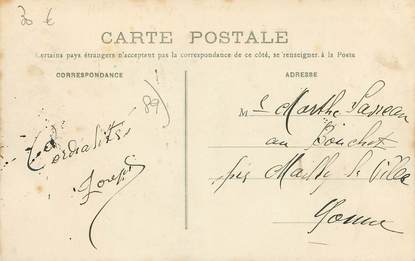 30 €
CARTE POSTALE
Certains pays étrangers n'acceptent pas la correspondance de ce côté, se renseigner à la Poste
CORRESPONDANCE
ADRESSE
89)
Cordialités
Joseph
Mlle Marthe
au Bouchet
par Mailly la Ville
Yonne